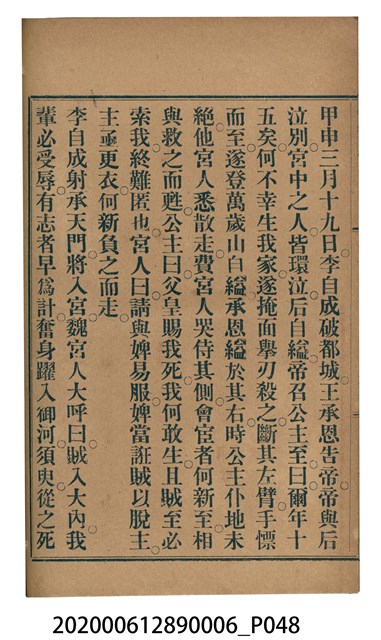 甲申三月十九日李自成破都城王承恩告帝帝與后
泣別宮中之人皆環泣后自縊帝召公主至曰爾年十
五矣何不幸生我家遂掩面舉刃殺之斷其左臂手慄
而至遂登萬歲山自縊承恩縊於其右時公主仆地未
絕他宮人悉散走費宮人哭侍其側會宦者何新至相
與救之而甦公主曰父皇賜我死我何敢生且賊至必
索我終難匿也宮人曰請與婢易服婢當誑賊以脫主
主亟更衣何新負之而走
李自成射承天門將入宮魏宮人大呼曰賊入大內我
輩必受辱有志者早為計奮身躍入御河須臾從之死
202000612890006_P048